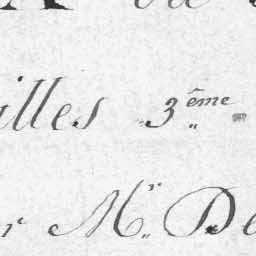 illes 3.ème
r M.r De